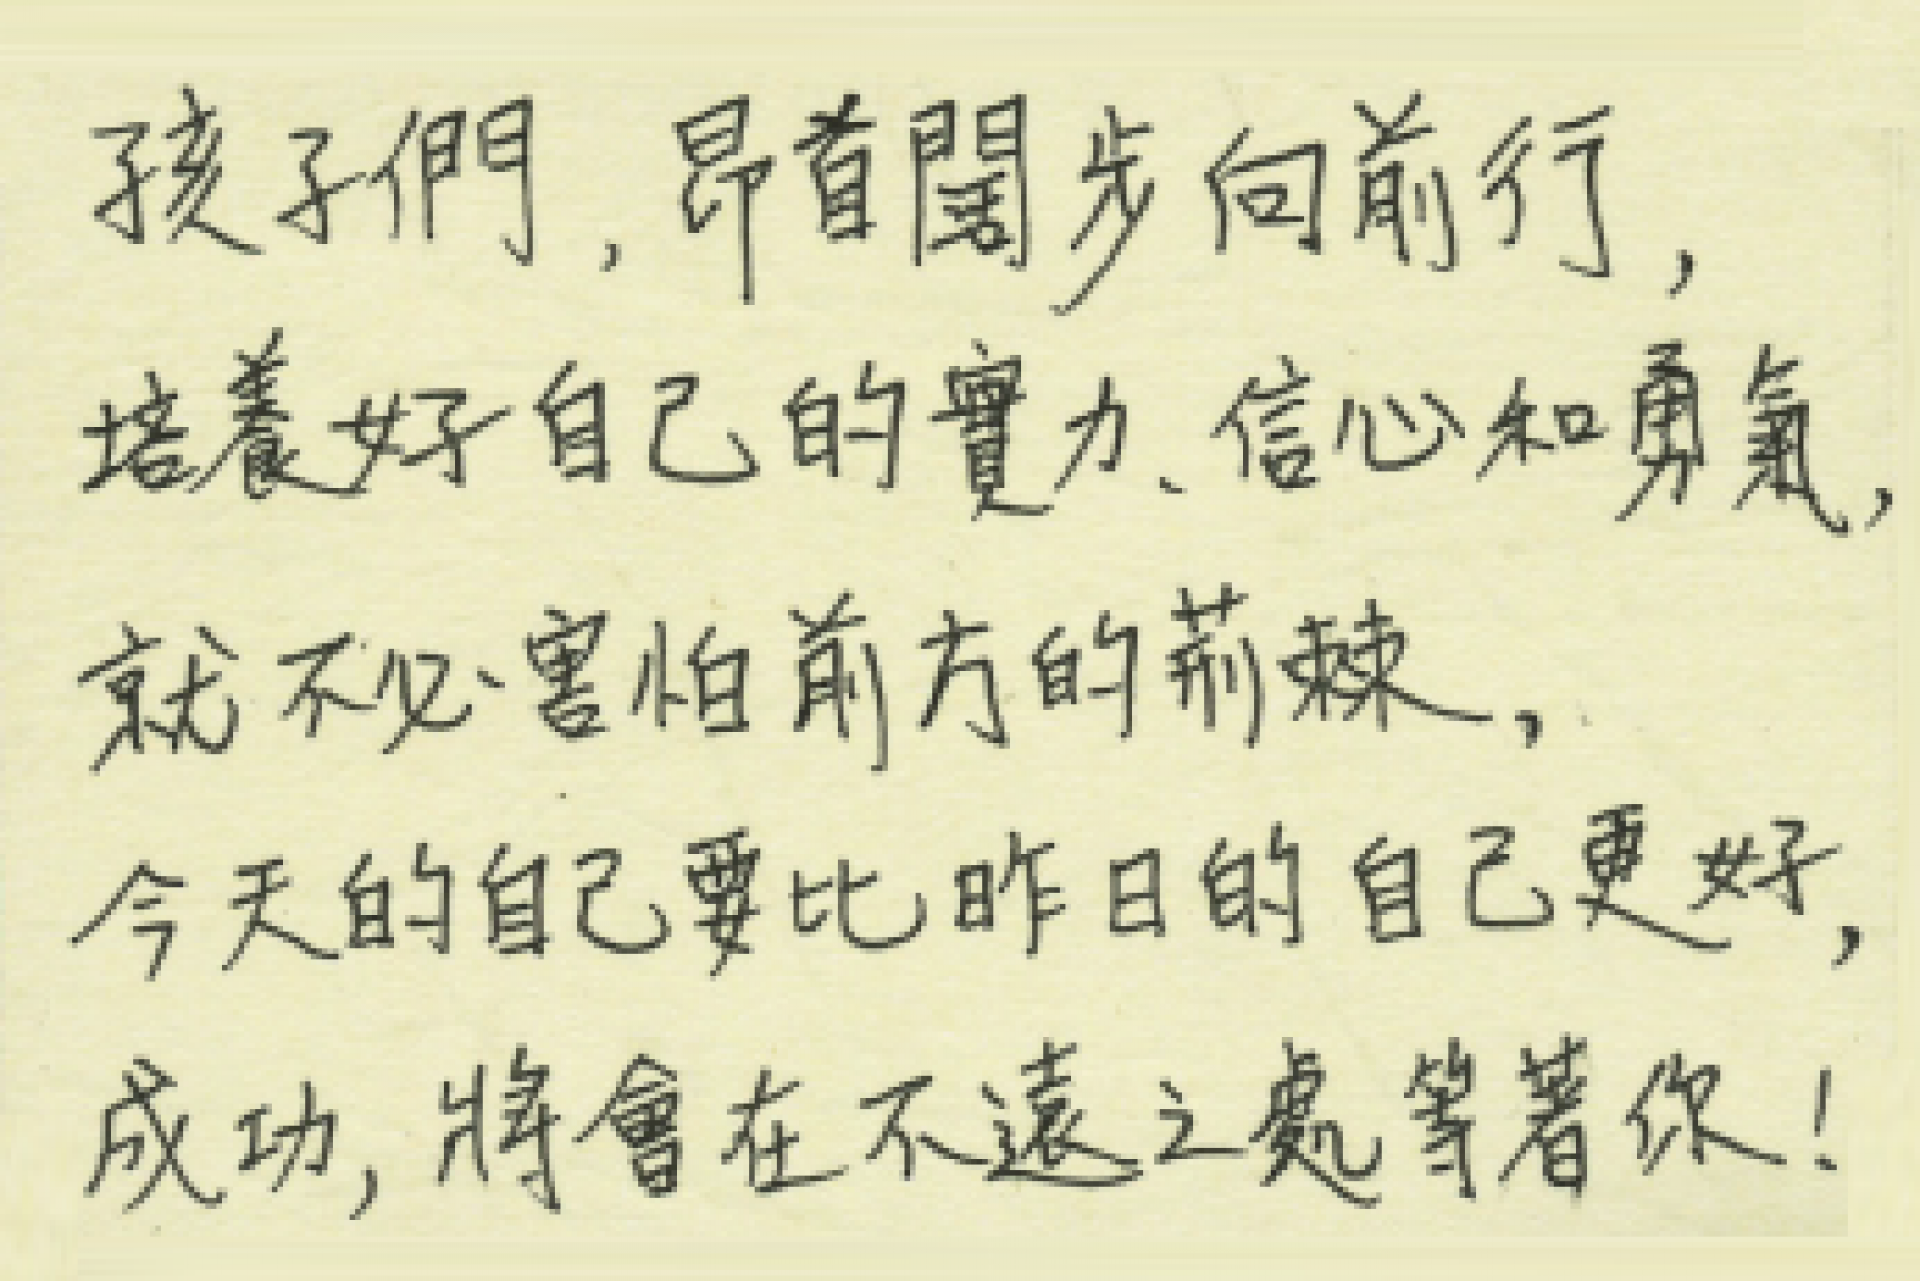 孩子們，昂首闊步向前行，
培養好自己的實力、信心和勇氣，
就不必害怕前方的荊棘，
今天的自己要比昨日的自己更好，
成功，將會在不遠之處等著你！